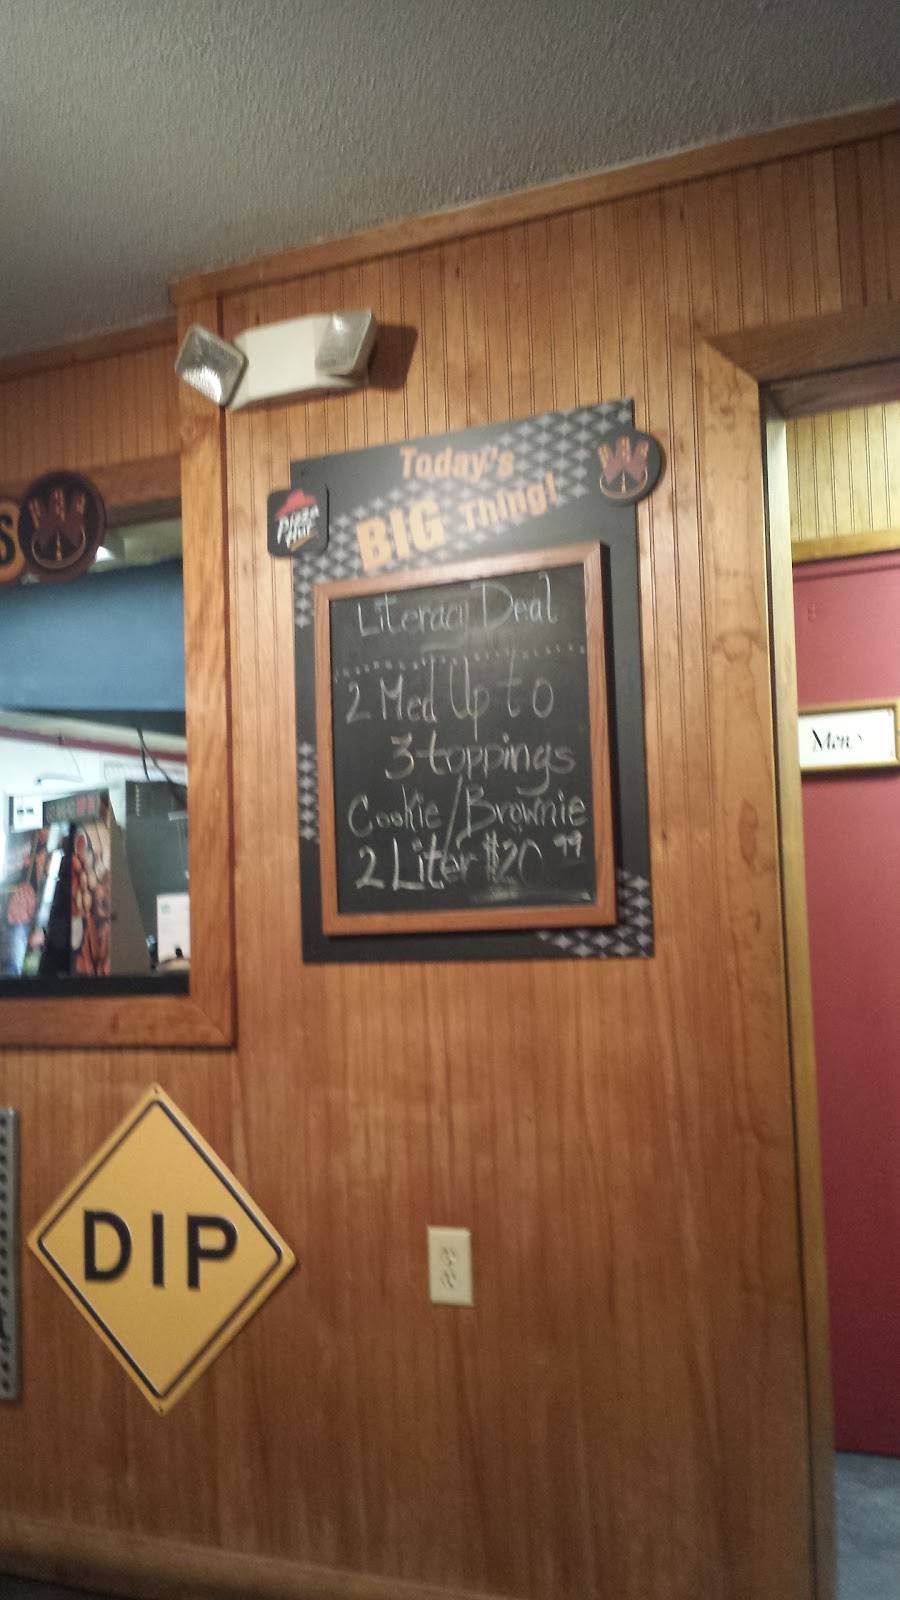 Today's
BIG Thing!
Pizza
Hut
Literacy Deal
2 Med Up to
3 toppings
Cookie/Brownie
2 Liter $20 99
S
Men
DIP